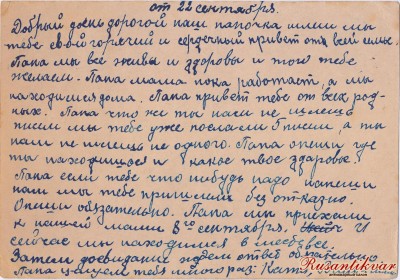 от 22 сентября.
Добрый день дорогой наш папочка шлем мы
тебе свой горячий и сердечный привет от всей семьи.
Папа мы все живы и здоровы и того тебе
желаем. Папа мама пока работает, а мы
находимся дома. Папа привет тебе от всех род-
ных. Папа что же ты нам не пишешь
писем мы тебе уже послали 6 писем, а ты
нам не пишешь не одного. Папа опиши где
ты находишься и какое твое здоровье.
Папа если тебе что нибудь надо напиши
нам мы тебе пришлем без отказно.
Опиши обязательно. Папа мы приехали
к нашей маме 8го сентября. и
сейчас мы находимся
Затем досвидания ждем ответ обязательно
Папа цалуем тебя много раз:
Rusantikvar